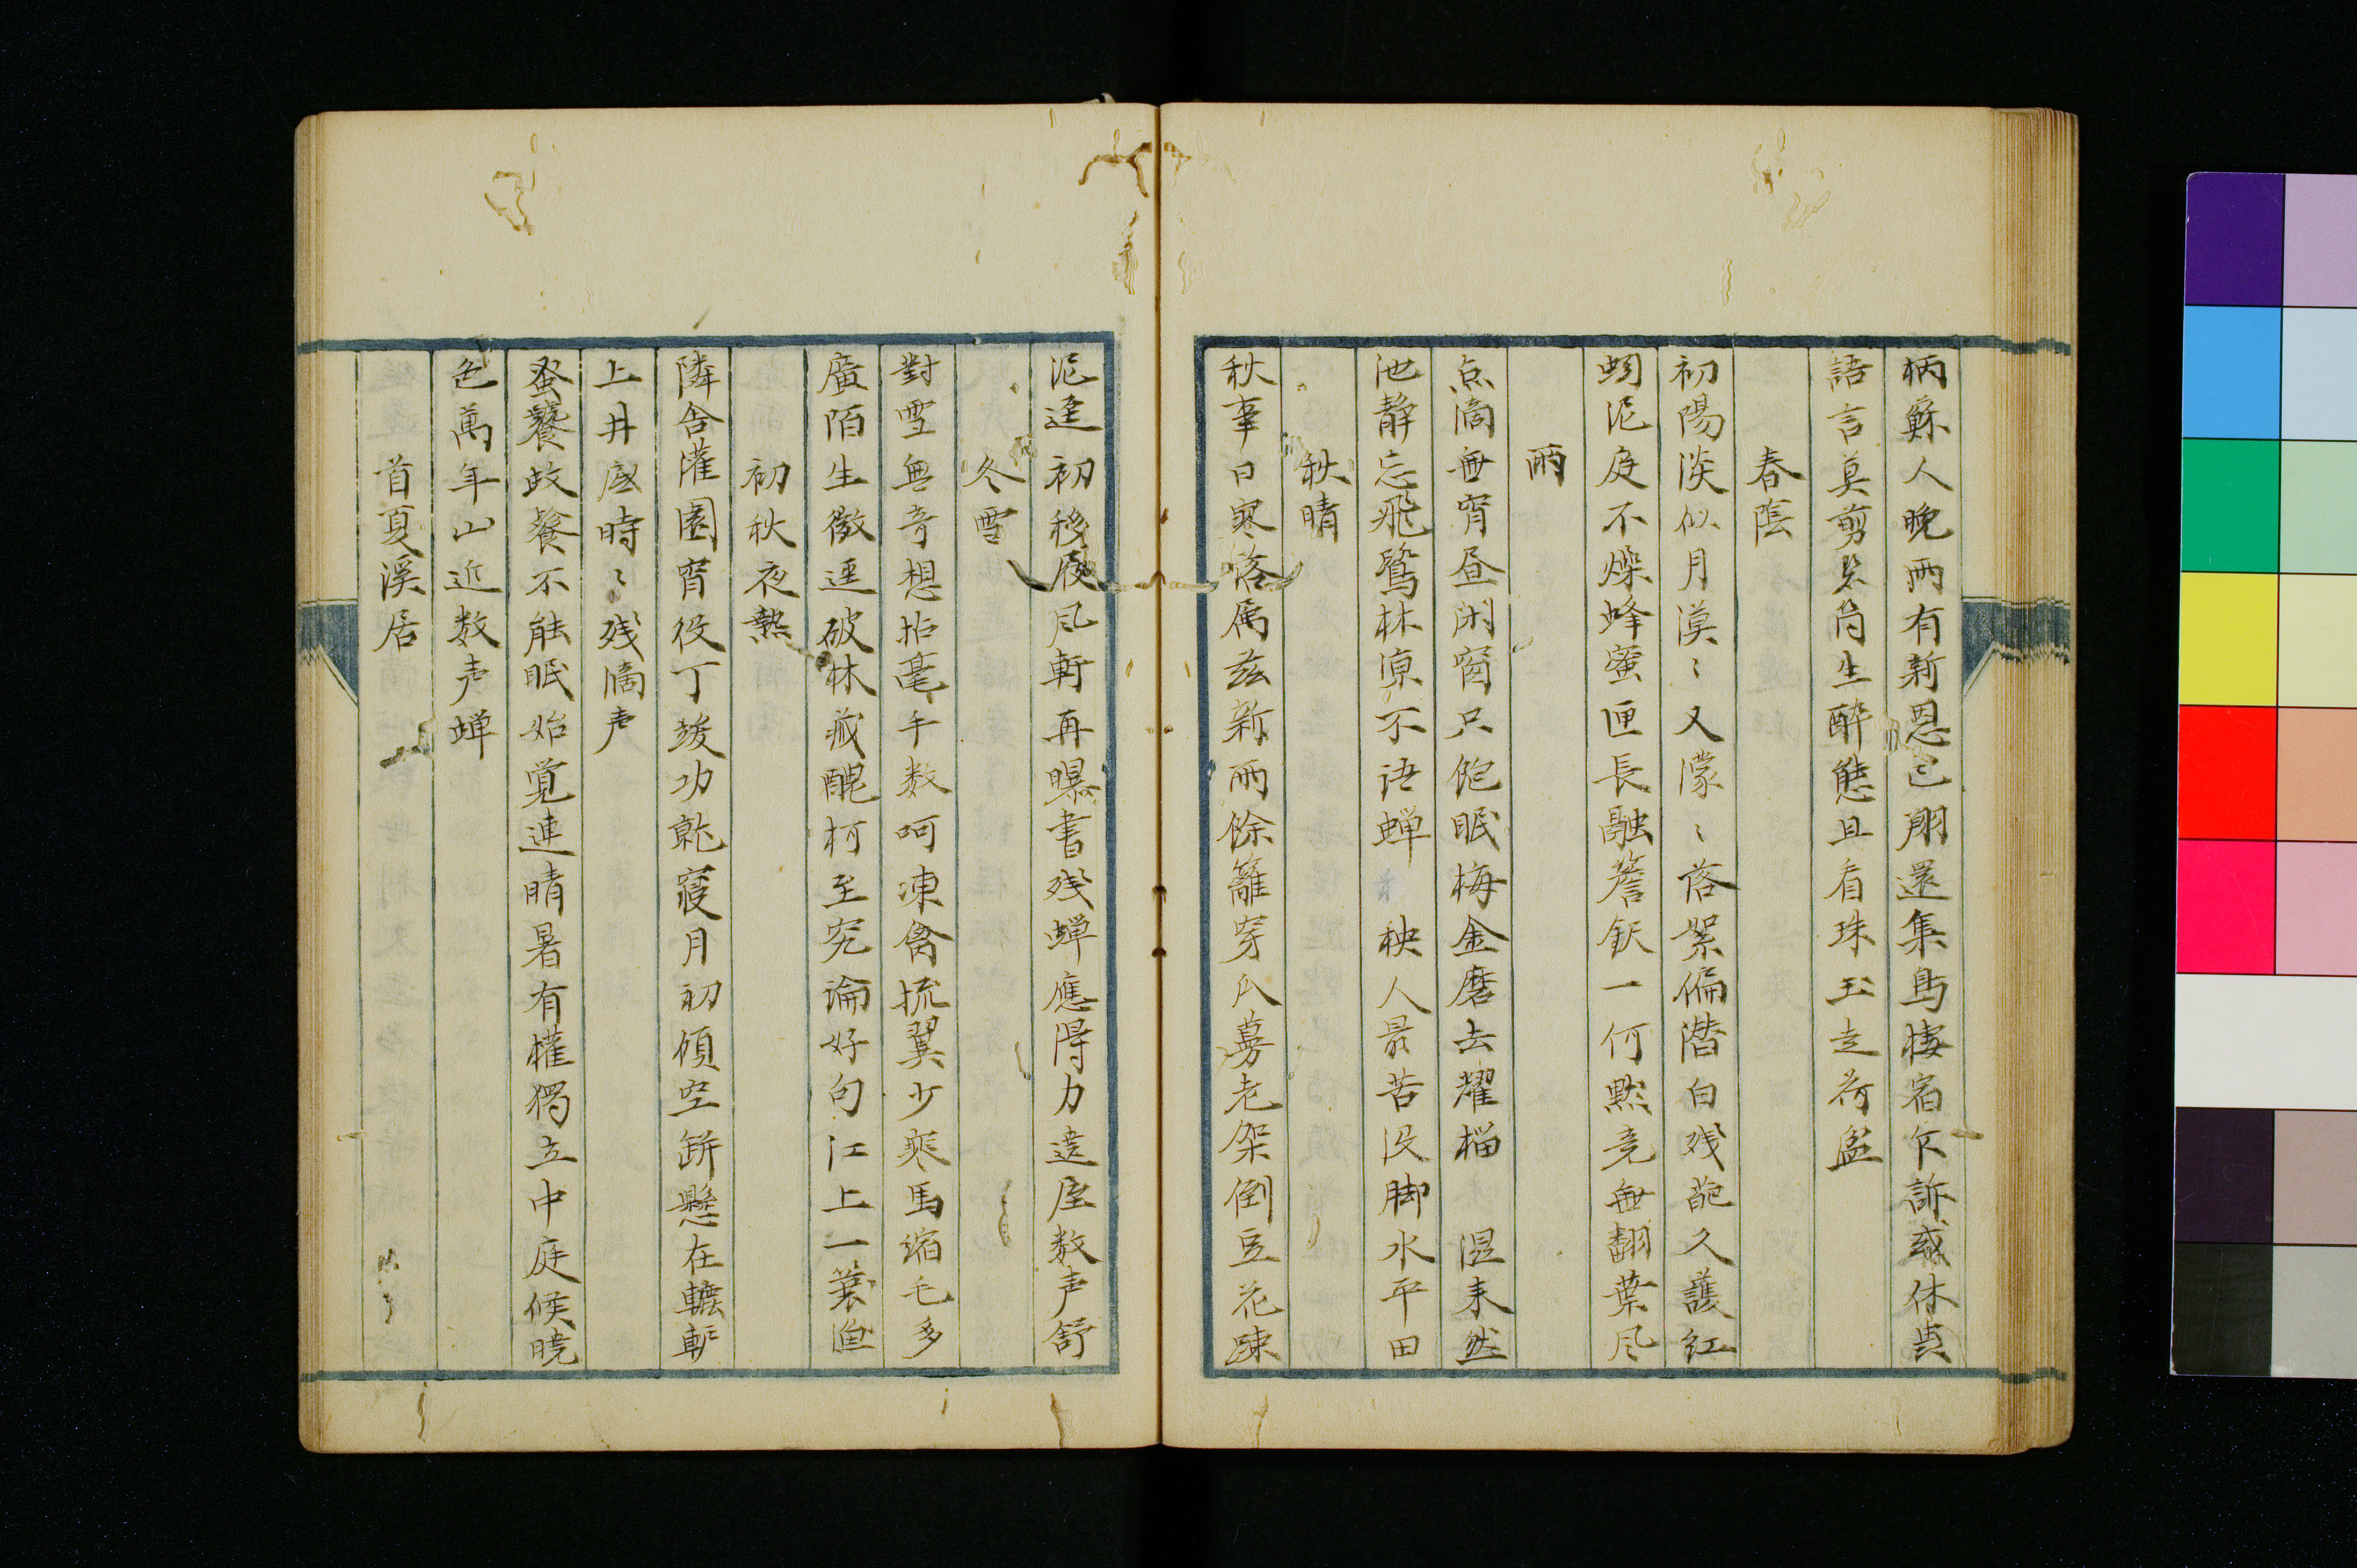 柄蘇人晚雨有新恩已朋還集鳥棲宿乍訴惑休嗔
語言莫剪生醉態且看珠玉走荷盆
春陰
初陽淡似月漠〻又濛〻落絮偏潛白残葩久護紅
蚓泥庭不燥蜂蜜匣長融簷鈬一何黙竟無翻葉風
雨
点滴無宵昼闲窗只飽眠梅金磨去耀榴湿未然
池静忘飛鷺林凉不语蝉秧人最苦没脚水平田
秋晴
秋事日寥落属兹新雨餘籬穿瓜蔓老架倒豆花疎
泥逹初移屐风軒再曝書残蝉應得力遶屋数声舒
冬雪
對雪無奇想拈毫午数呵凍禽梳翼少寒馬縮毛多
廣陌生微逕破林蔵醜柯至究論好句江上一蓑渔
初秋夜熱
隣舎灌園宵役丁竣功就寝月初傾空缾懸在轆轤
上井底時〻残滴声
蚤饕蚊餐不能眠始覚連晴暑有權獨立中庭候曉
色萬年山近数声蝉
首夏溪居